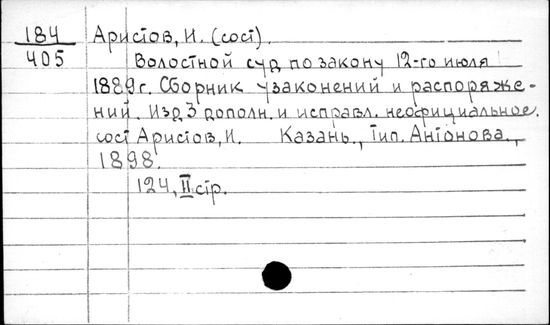 184 Аристов, И. (сост).
405 Волостной суд по закону 12-го июля
1889 г. Сборник узаконений и распоряже-
ний. Изд 3 дополн. и исправл. неофициальное.
сост Аристов, И. Казань., Тип. Антонова.,
1898
124, II стр.